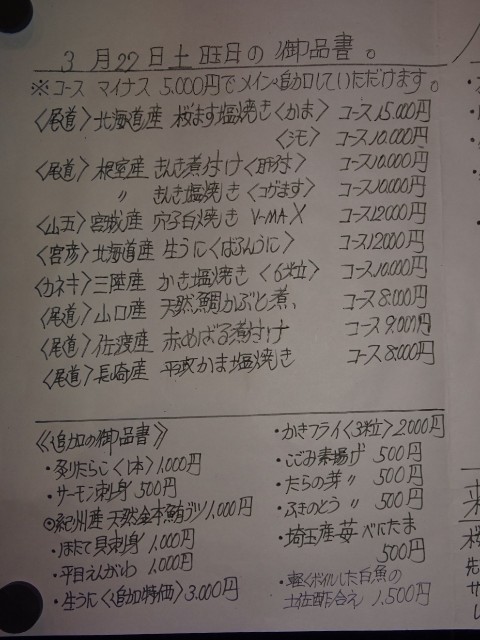 3月22日土曜日の御品書。
※コース マイナス 5,000円でメイン追加していただけます。
〈尾道〉北海道産 桜ます塩焼き〈かま〉 コース15.000円
〈シモ〉 コース10.000円
〈尾道〉根室産 きんき煮付け〈肝付〉 コース10.000円
〃 きんき塩焼き〈コゲます〉 コース10.000円
〈山五〉宮城産 穴子白焼き V-MAX コース12000円
〈宮彦〉北海道産 生うに〈ばふんうに〉 コース12000円
〈カネキ〉三陸産 かき塩焼き〈6粒〉 コース10.000円
〈尾道〉山口産 天然鯛かぶと煮、 コース8.000円
〈尾道〉佐渡産 赤めばる煮付け コース9.000円
〈尾道〉長崎産 平政かま塩焼き コース8.000円
《追加の御品書》
・炙りたらこ〈1本〉1,000円
・サーモン刺身 500円
◎紀州産 天然金本鮪ブツ 1,000円
・ほたて貝刺身 1,000円
・平目えんがわ 1,000円
・生うに〈追加特価〉3.000円
・かきフライ〈3粒〉2000円
・こごみ素揚げ 500円
・たらの芽 〃 500円
・ふきのとう 〃 500円
・埼玉産苺 べにたま
500円
・軽くボイルした白魚の
土佐酢合え 1,500円